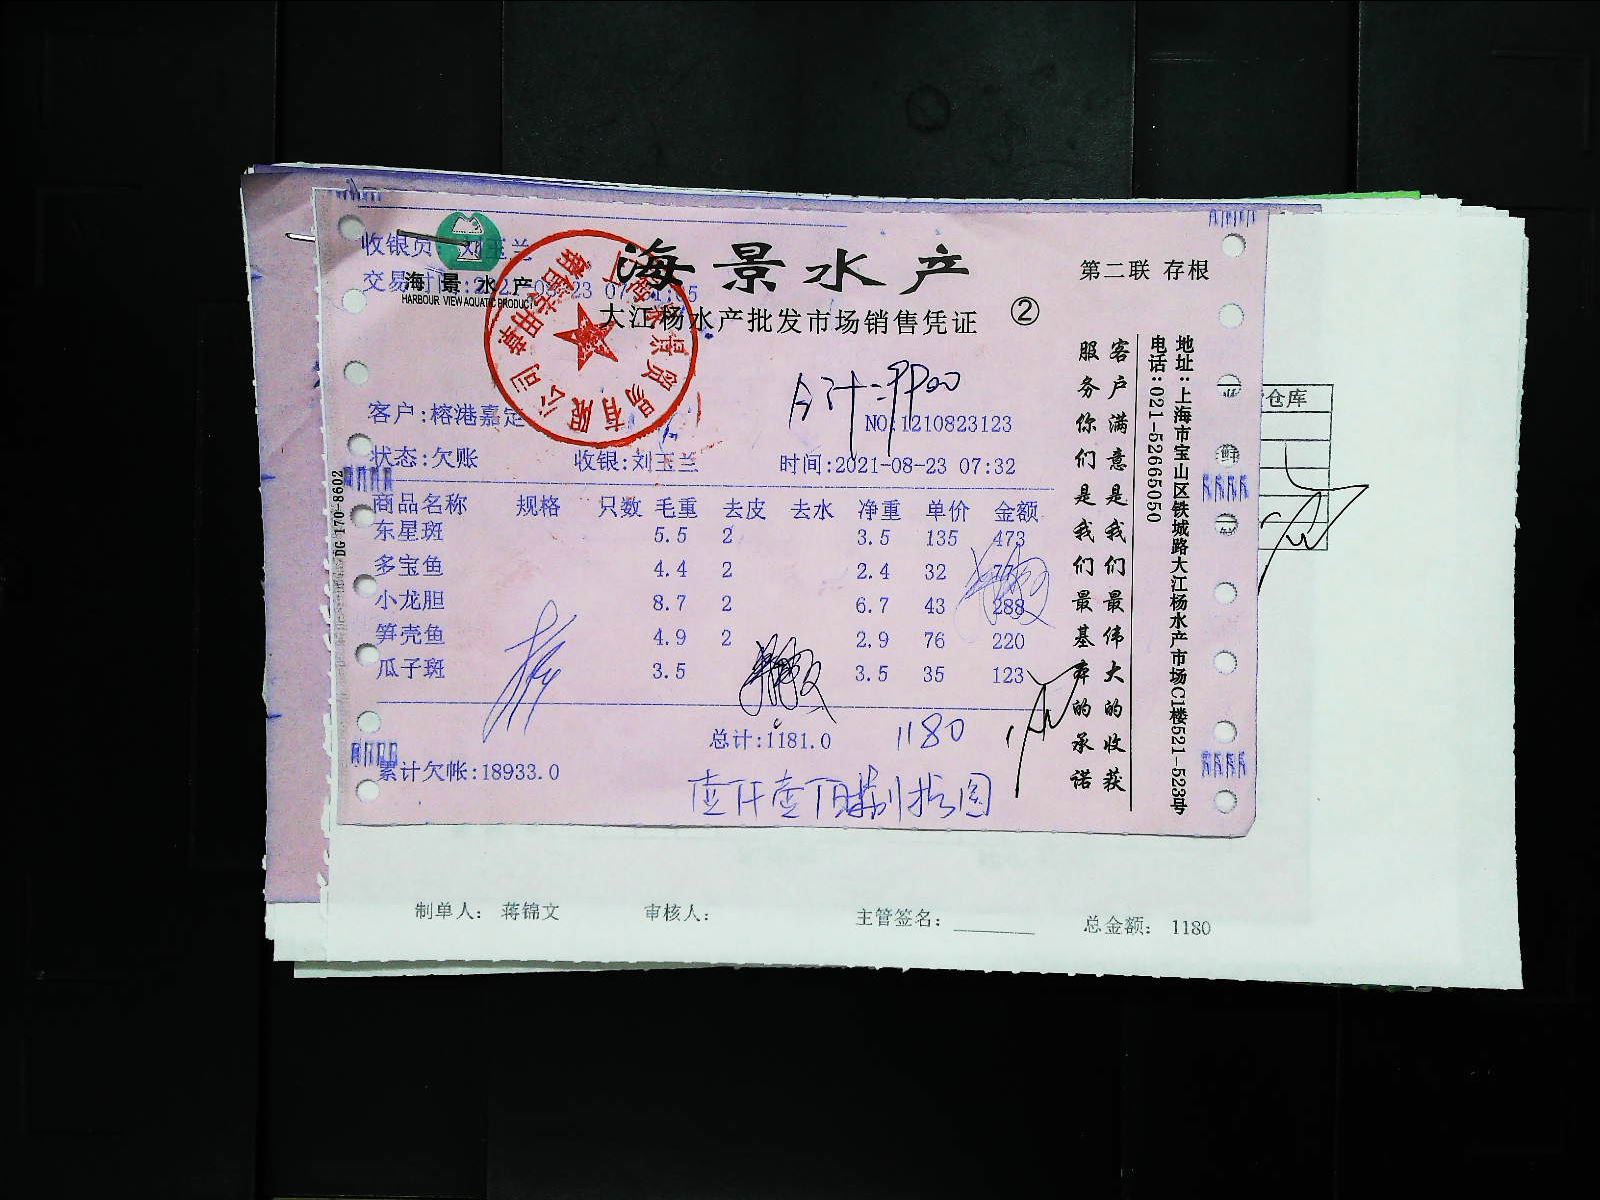 海景水产
第二联 存根
收银员:刘玉兰
海景水产
HARBOUR VIEW AQUATIC PRODUCT
大江杨水产批发市场销售凭证 ②
合计:
客户:榕港嘉定
NO:1210823123
状态:欠账 收银:刘玉兰 时间:2021-08-23 07:32
商品名称 规格 只数 毛重 去皮 去水 净重 单价 金额
东星斑 5.5 2 3.5 135 473
多宝鱼 4.4 2 2.4 32 77
小龙胆 8.7 2 6.7 43 288
笋壳鱼 4.9 2 2.9 76 220
瓜子斑 3.5 3.5 35 123
总计:1181.0 1180
累计欠帐:18933.0
壹仟壹佰捌拾圆
客户满意是我们最伟大的收获
服务你们是我们最基本的承诺
地址:上海市宝山区铁城路大江杨水产市场C1楼521-523号
电话:021-52665050
DG 170-8602
销售专用章
贸易有限公司
仓库
鲜
制单人: 蒋锦文 审核人: 主管签名: 总金额: 1180